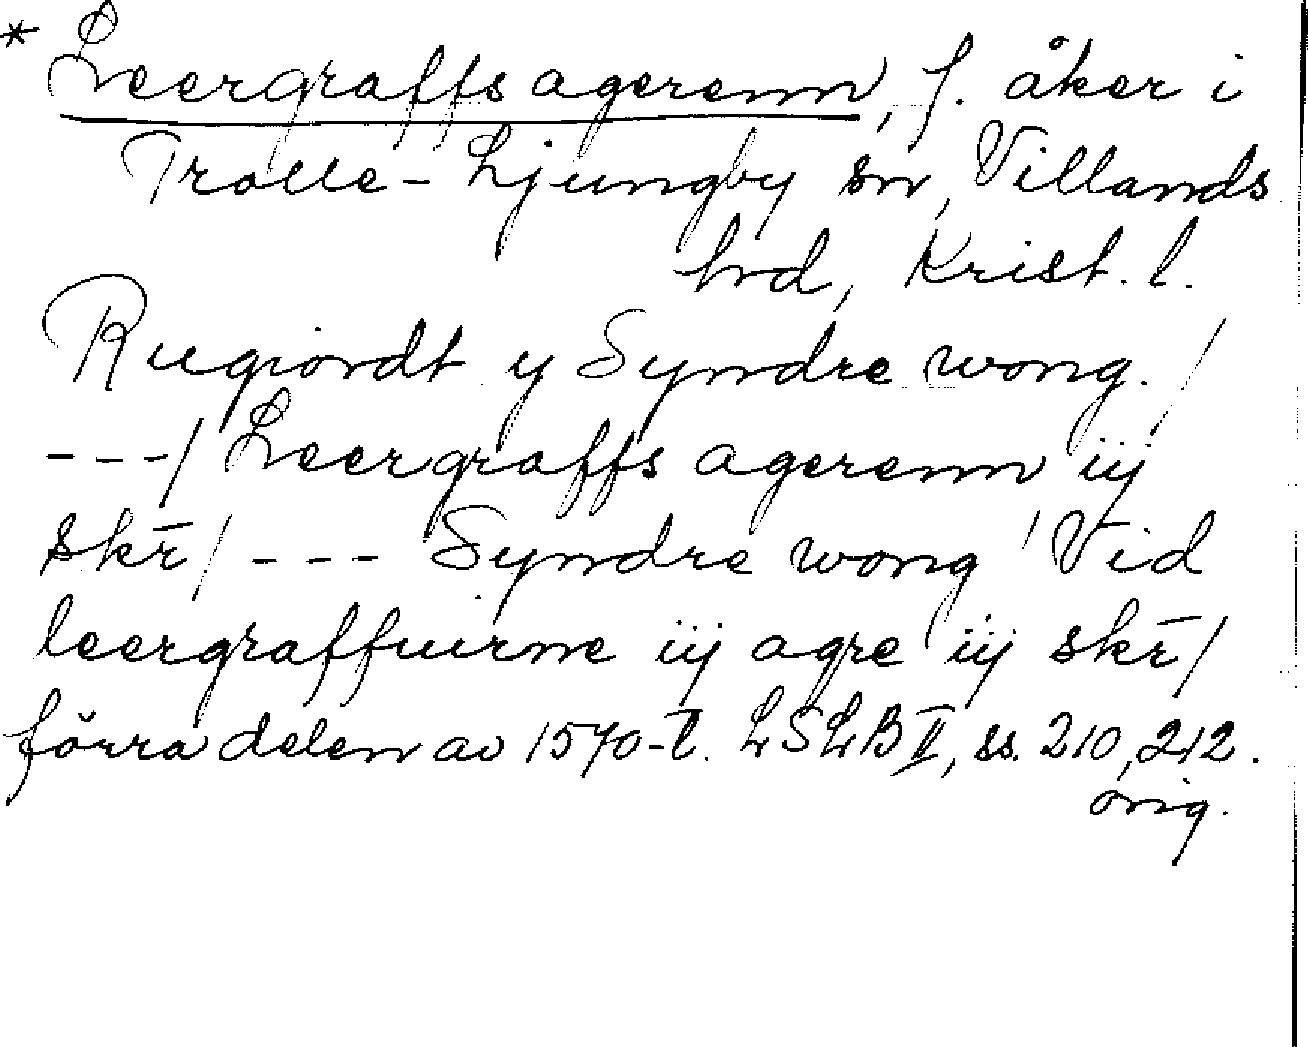 * Leergraffs agerenn, f. åker i
Trolle-Ljungby sn, Villands
hrd, Krist. l.
Rugiordt y Syndre wong. /
---/ Leergraffs agerenn iij
skr̄ / --- Syndre wong / Vid
leergraffuerne iij agre iij skr̄ /
förra delen av 1570-t. LSLB II, ss. 210, 212.
orig.